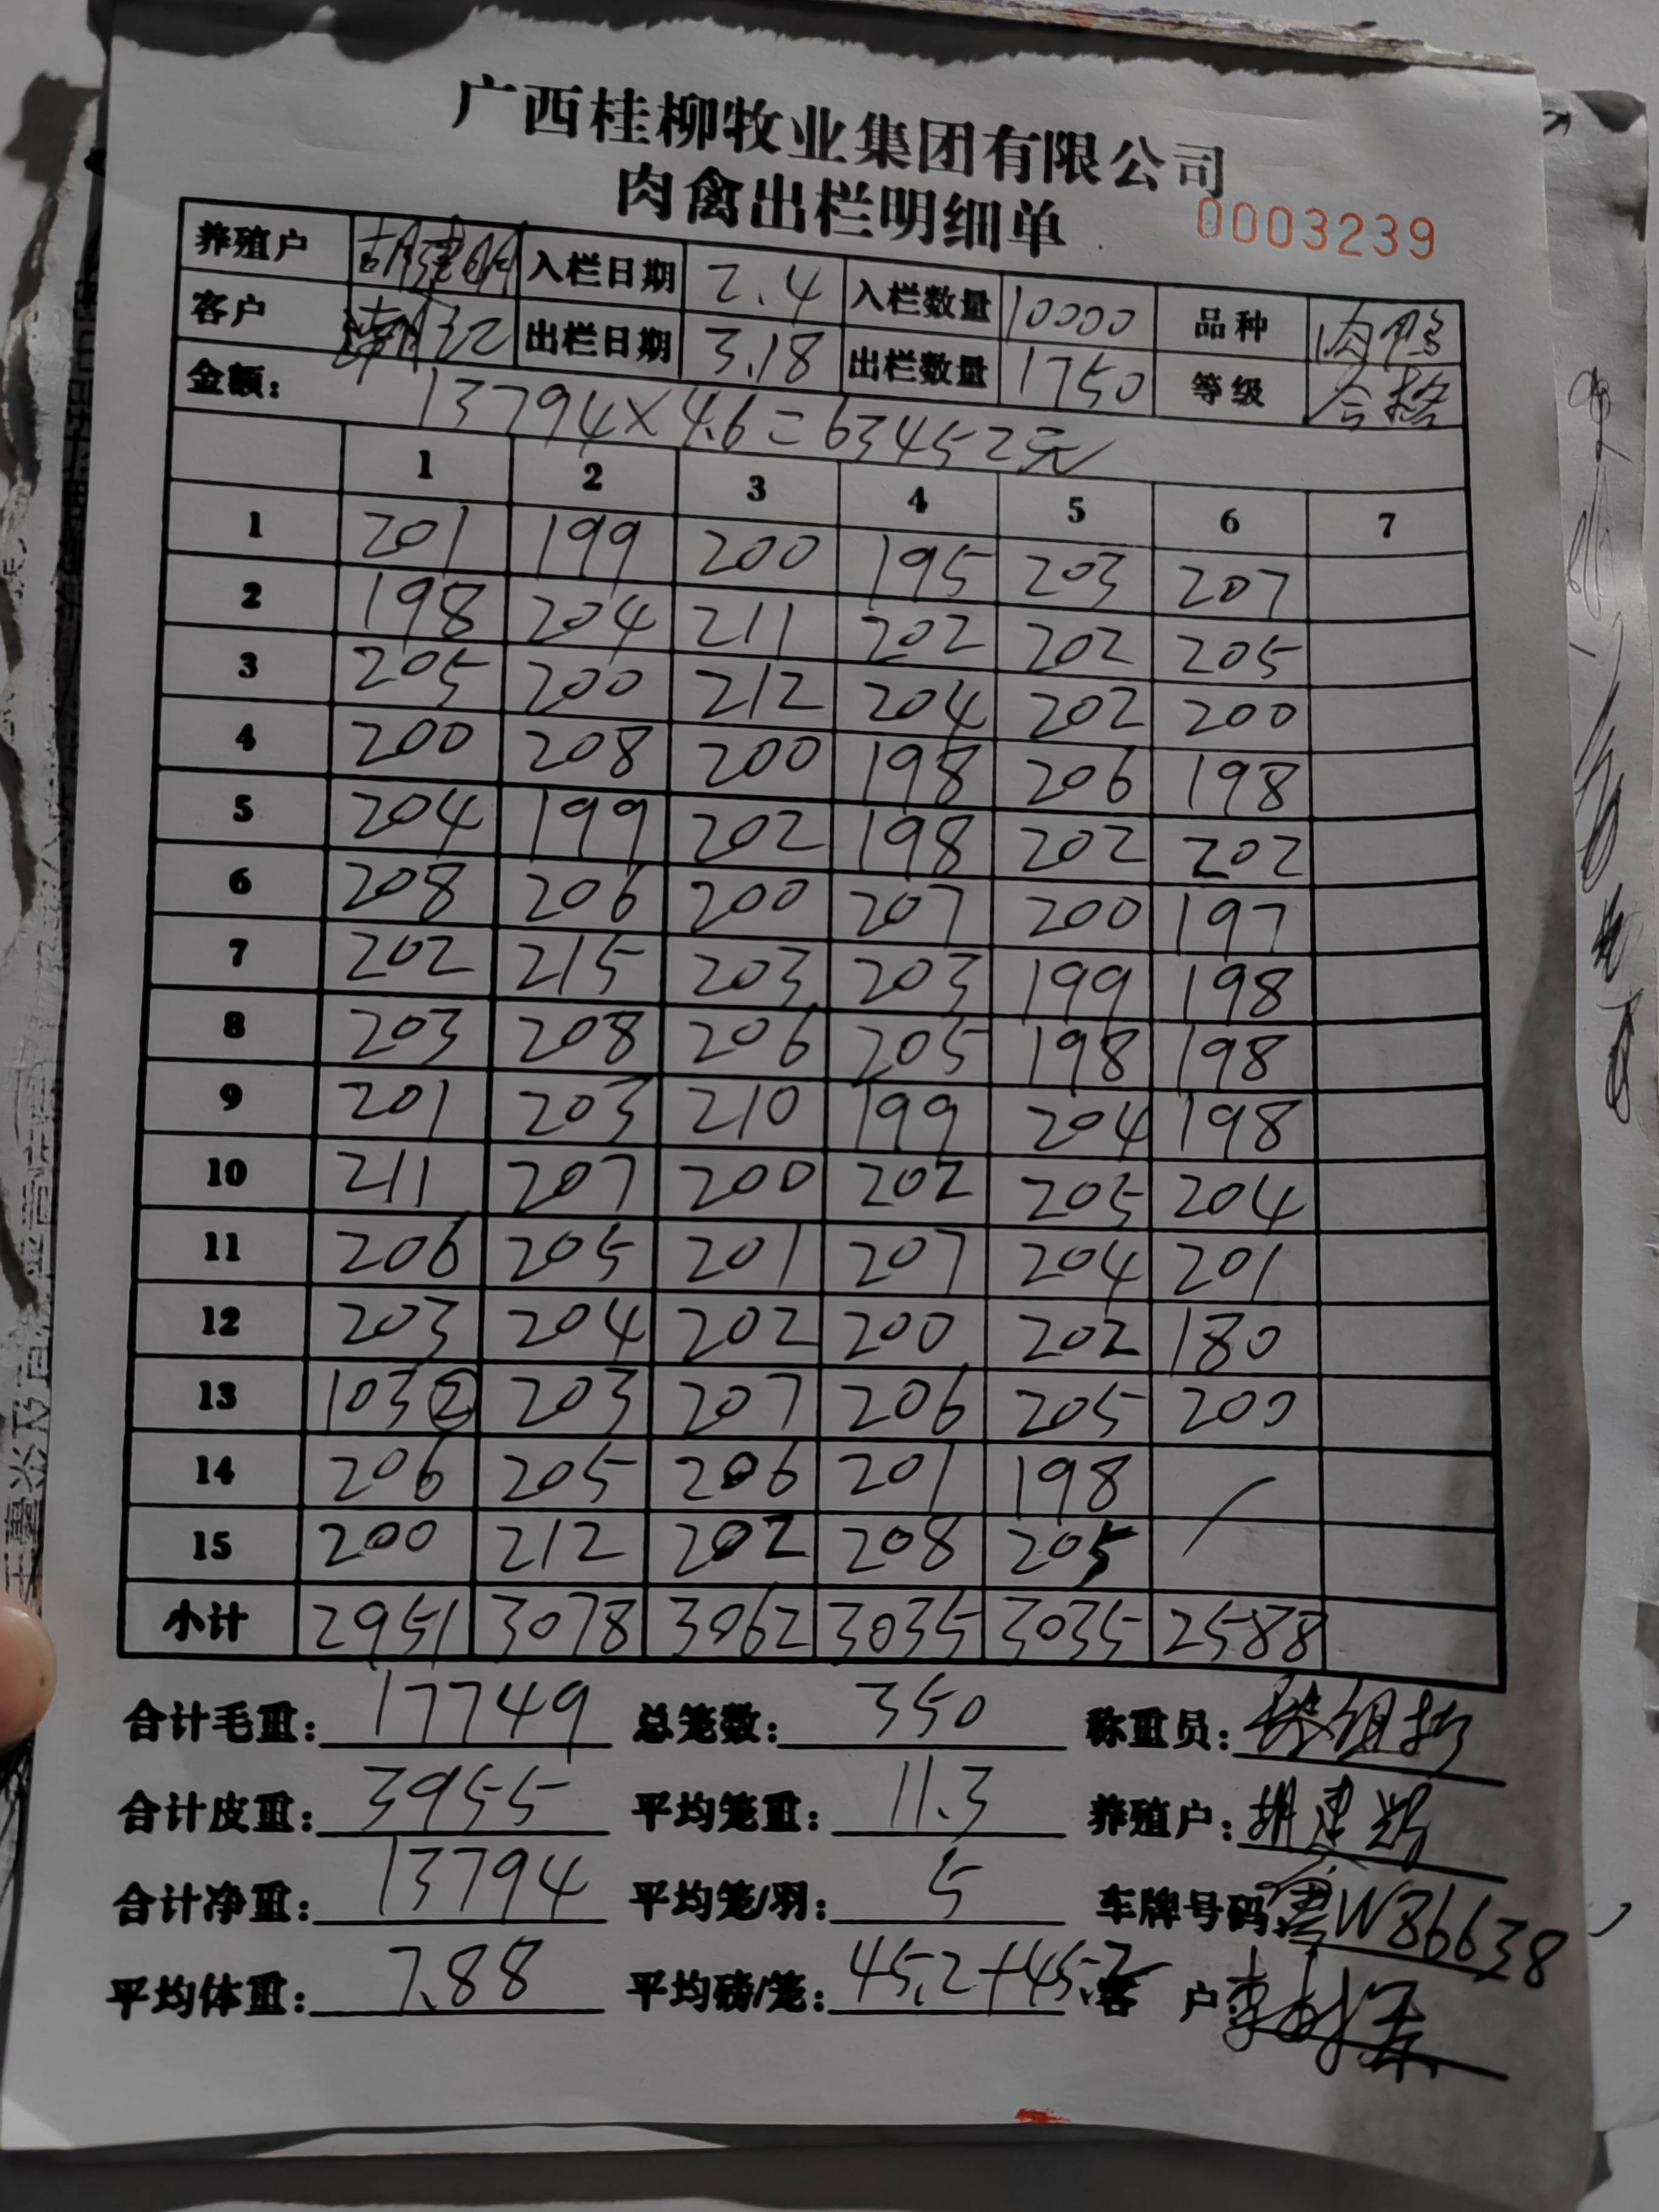 广西桂柳牧业集团有限公司
肉禽出栏明细单 0003239
养殖户 入栏日期 2.4 入栏数量 10000 品种 肉鸭
客户 出栏日期 3.18 出栏数量 1750 等级 合格
金额: 13794×4.6=63452元
1 2 3 4 5 6 7
1 201 199 200 195 203 207
2 198 204 211 202 202 205
3 205 200 212 204 202 200
4 200 208 200 198 206 198
5 204 199 202 198 202 202
6 208 206 200 207 200 197
7 202 215 203 203 199 198
8 203 208 206 205 198 198
9 201 203 210 199 204 198
10 211 207 200 202 205 204
11 206 205 201 207 204 201
12 203 204 202 200 202 180
13 103② 203 207 206 205 200
14 206 205 206 201 198
15 200 212 202 208 205
小计 2951 3078 3062 3035 3035 2588
合计毛重: 17749 总笼数: 350 称重员:
合计皮重: 3955 平均笼重: 11.3 养殖户:
合计净重: 13794 平均笼/羽: 5 车牌号码 粤W86638
平均体重: 7.88 平均磅/笼: 45.2+45.2 客 户